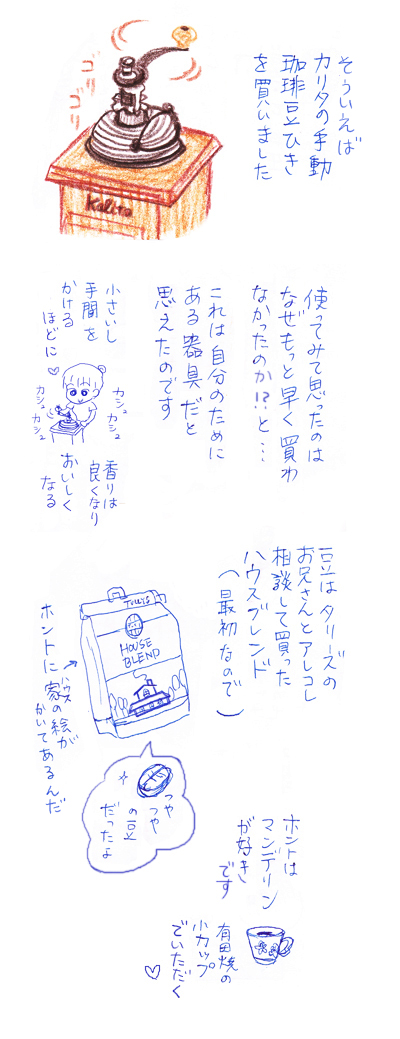 そういえば
カリタの手動
珈琲豆ひき
を買いました
ゴリ
ゴリ
Kalita
使ってみて思ったのは
なぜもっと早く買わ
なかったのか!?と…
これは自分のために
ある器具だと
思えたのです
小さいし
手間を
かける
ほどに♡
カシュ
カシュ
カシュ
カシュ
香りは
良くなり
おいしく
なる
豆はタリーズの
お兄さんとアレコレ
相談して買った
ハウスブレンド
(最初なので)
TULLY'S
HOUSE
BLEND
ホントに家の絵が
ハウス
かいてあるんだ
つや
つや
の豆
だったよ
ホントは
マンデリン
が好き
です
有田焼の
小カップ
でいただく
♡